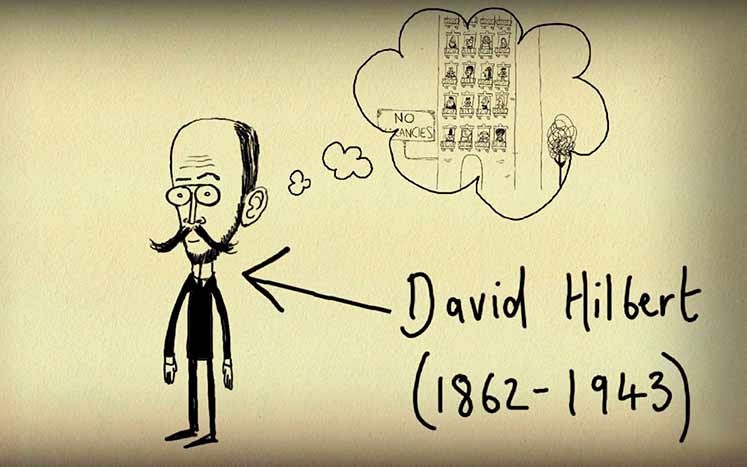 NO
ANCIES
David Hilbert
(1862-1943)